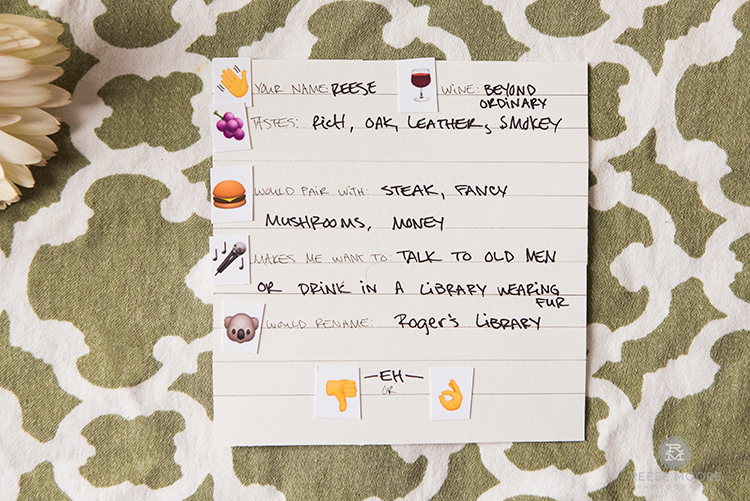 YOUR NAME: REESE WINE: BEYOND
ORDINARY
TASTES: RICH, OAK, LEATHER, SMOKEY
WOULD PAIR WITH: STEAK, FANCY
MUSHROOMS, MONEY
MAKES ME WANT TO: TALK TO OLD MEN
OR DRINK IN A LIBRARY WEARING
FUR
WOULD RENAME: ROGER'S LIBRARY
—EH—
OR
RM
REESE MOORE